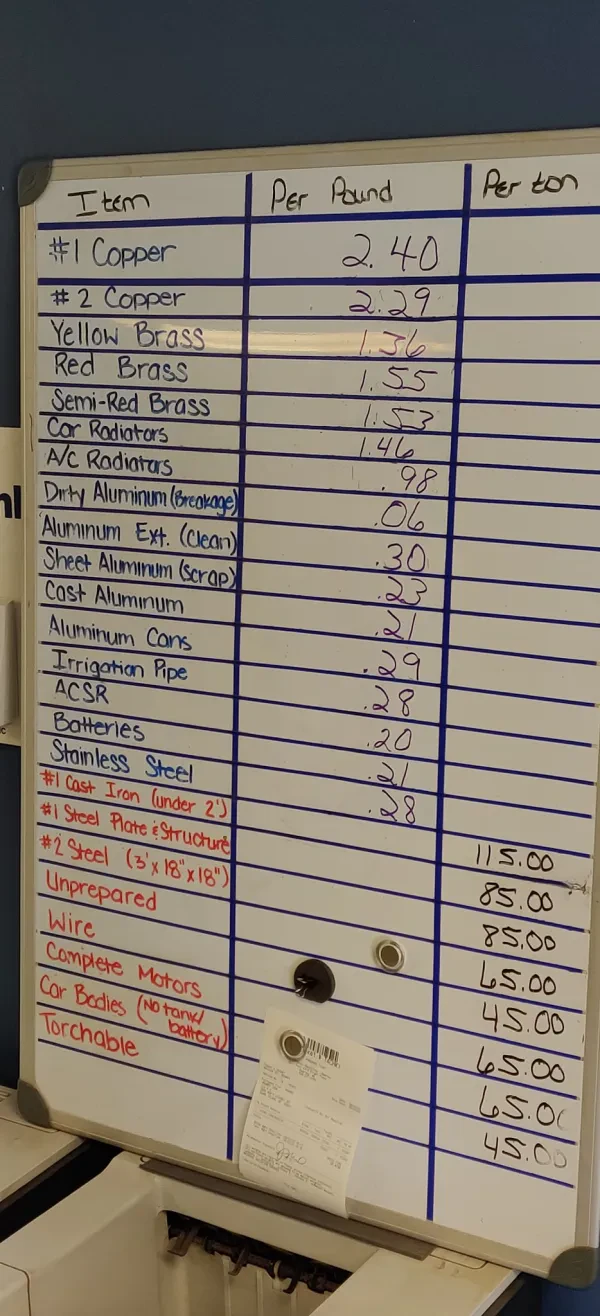 Item Per Pound Per ton
#1 Copper 2.40
#2 Copper 2.29
Yellow Brass 1.36
Red Brass 1.55
Semi-Red Brass 1.53
Car Radiators 1.46
A/C Radiators .98
Dirty Aluminum (Breakage) .06
Aluminum Ext. (Clean) .30
Sheet Aluminum (scrap) .23
Cast Aluminum .21
Aluminum Cans .29
Irrigation Pipe .28
ACSR .20
Batteries .21
Stainless Steel .28
#1 Cast Iron (under 2') 115.00
#1 Steel Plate & Structure 85.00
#2 Steel (3'x18"x18") 85.00
Unprepared 65.00
Wire 45.00
Complete Motors 65.00
Car Bodies (No tank/ battery) 65.00
Torchable 45.00